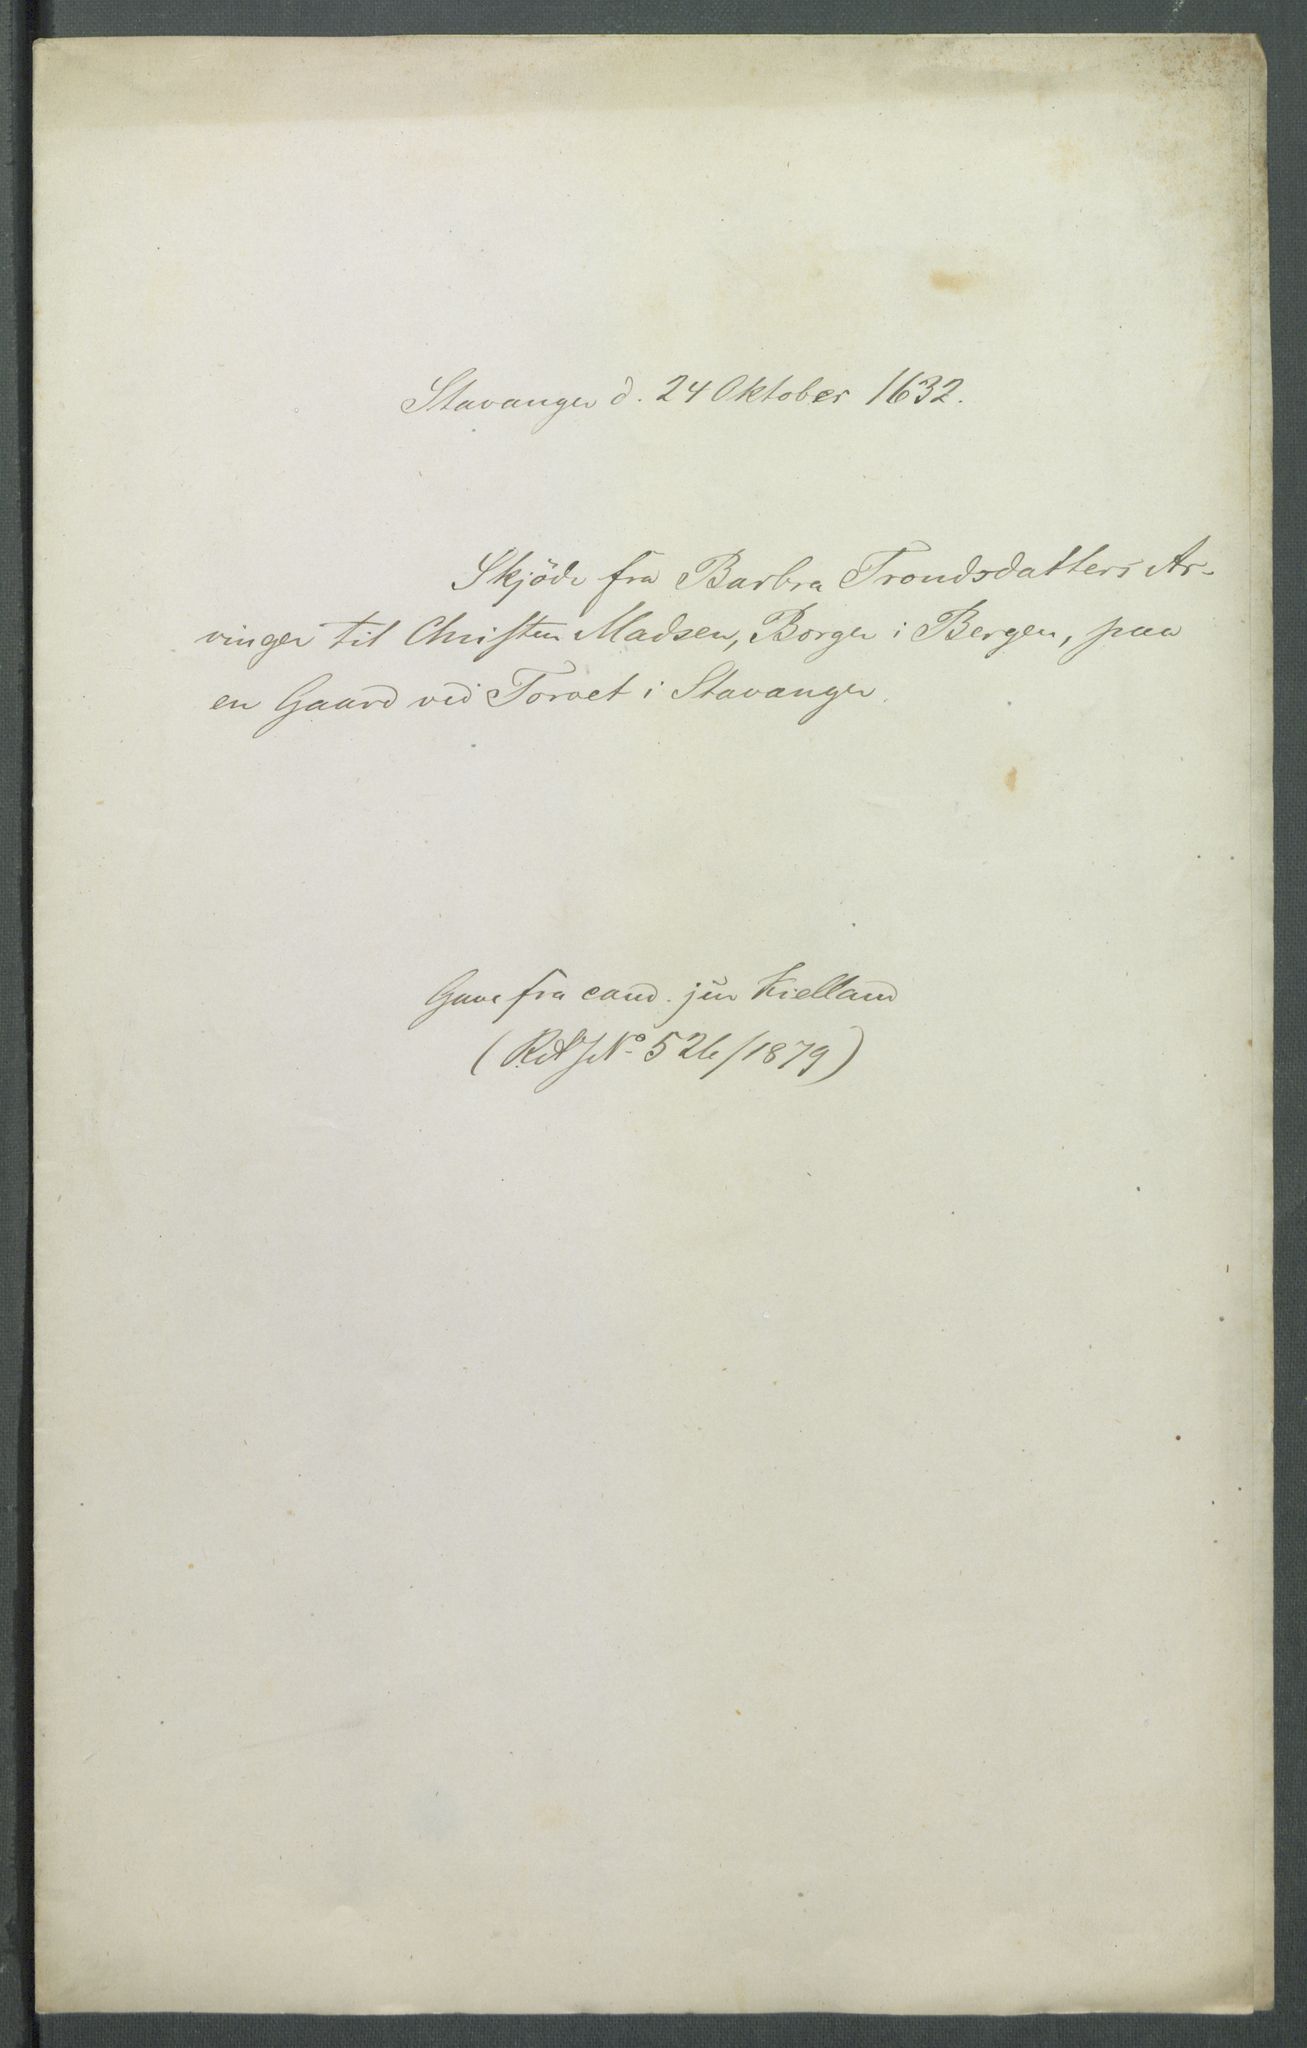 Stavanger d. 24 Oktober 1632.
Skjöde fra Barbra Trondsdatters Ar-
vinger til Christen Madsen, Borger i Bergen, paa
en Gaard ved Torvet i Stavanger.
Gave fra cand. jur Kielland
(RAJNo 526/1879)